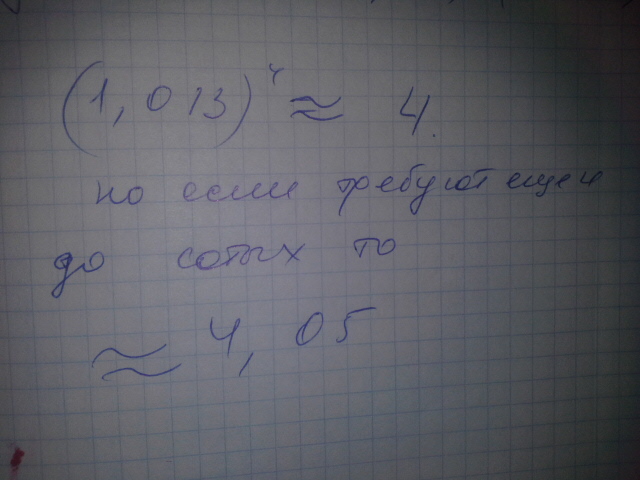 (1,013)⁴ ≈ 4.
но если требуют еще и
до сотых то
≈ 4,05